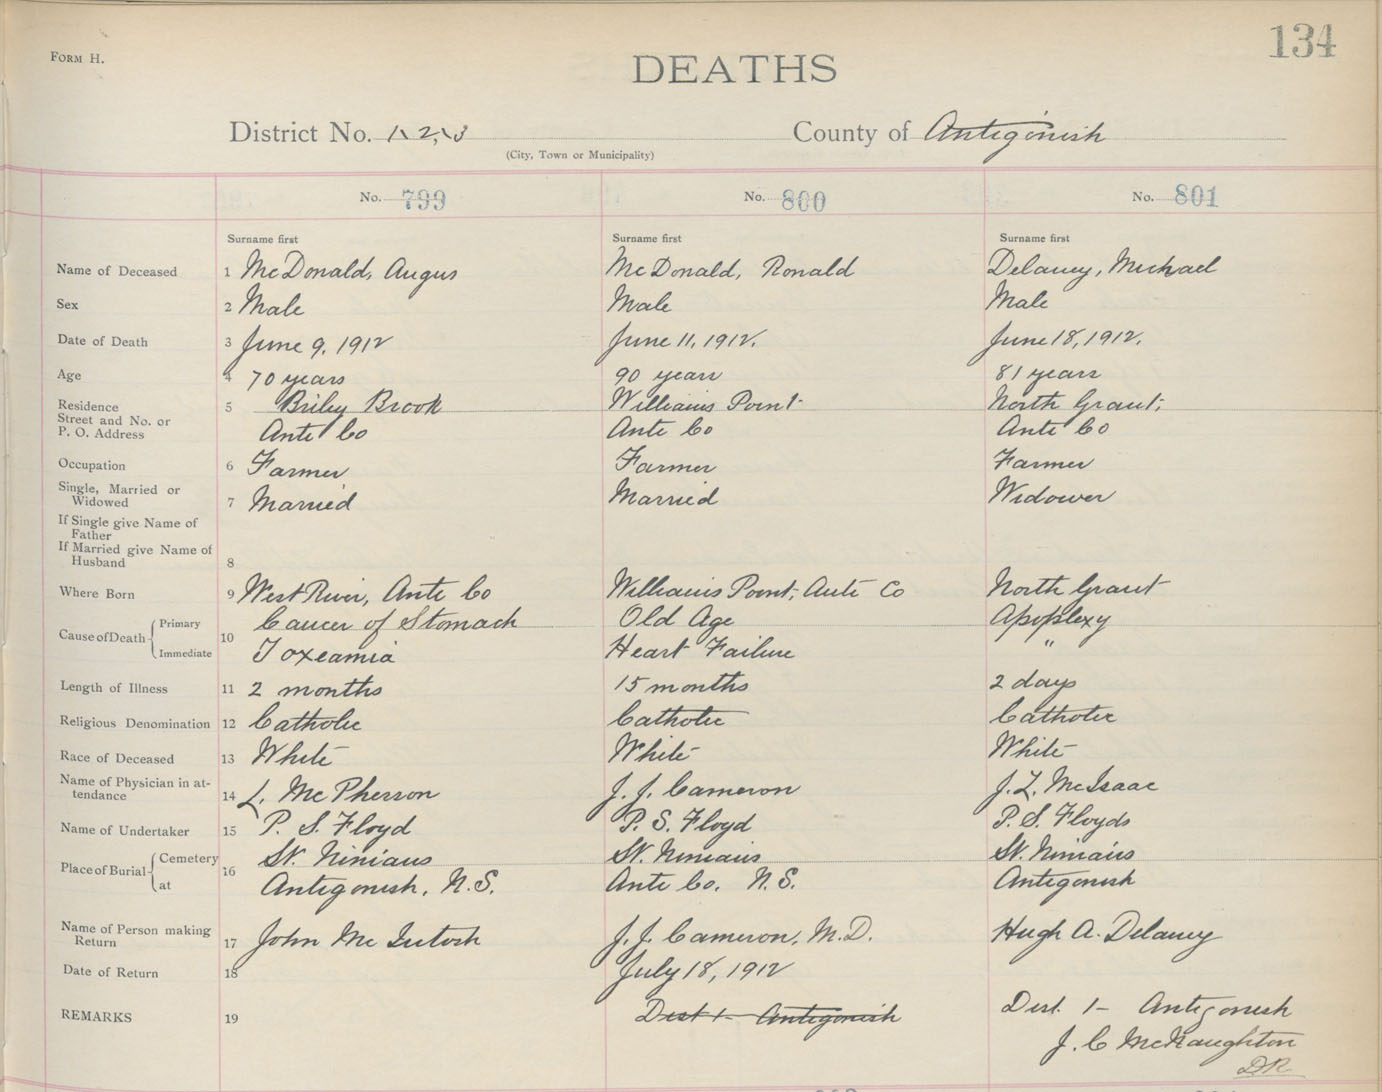 134
FORM H.
DEATHS
District No. 1, 2, 3 County of Antigonish
(City, Town or Municipality)
No. 799 No. 800 No. 801
Surname first Surname first Surname first
Name of Deceased 1 McDonald, Angus McDonald, Ronald Delaney, Michael
Sex 2 Male Male Male
Date of Death 3 June 9, 1912 June 11, 1912. June 18, 1912.
Age 4 70 years 90 years 81 years
Residence 5 Briley Brook Williams Point North Grant,
Street and No. or
P. O. Address Ante Co Ante Co Ante Co
Occupation 6 Farmer Farmer Farmer
Single, Married or
Widowed 7 Married Married Widower
If Single give Name of
Father
If Married give Name of
Husband 8
Where Born 9 West River, Ante Co Williams Point, Ante Co North Grant
Cause of Death Primary 10 Cancer of Stomach Old Age Apoplexy
Immediate Toxeamia Heart Failure "
Length of Illness 11 2 months 15 months 2 days
Religious Denomination 12 Catholic Catholic Catholic
Race of Deceased 13 White White White
Name of Physician in at-
tendance 14 L. McPherson J. J. Cameron J. L. McIsaac
Name of Undertaker 15 P. S. Floyd P. S. Floyd P. S. Floyds
Place of Burial Cemetery 16 St. Ninians St. Ninians St. Ninians
at Antigonish, N.S. Ante Co. N.S. Antigonish
Name of Person making
Return 17 John McIntosh J. J. Cameron, M.D. Hugh A. Delaney
Date of Return 18 July 18, 1912
REMARKS 19 Dist 1- Antigonish Dist. 1- Antigonish
J. C McNaughton
DR